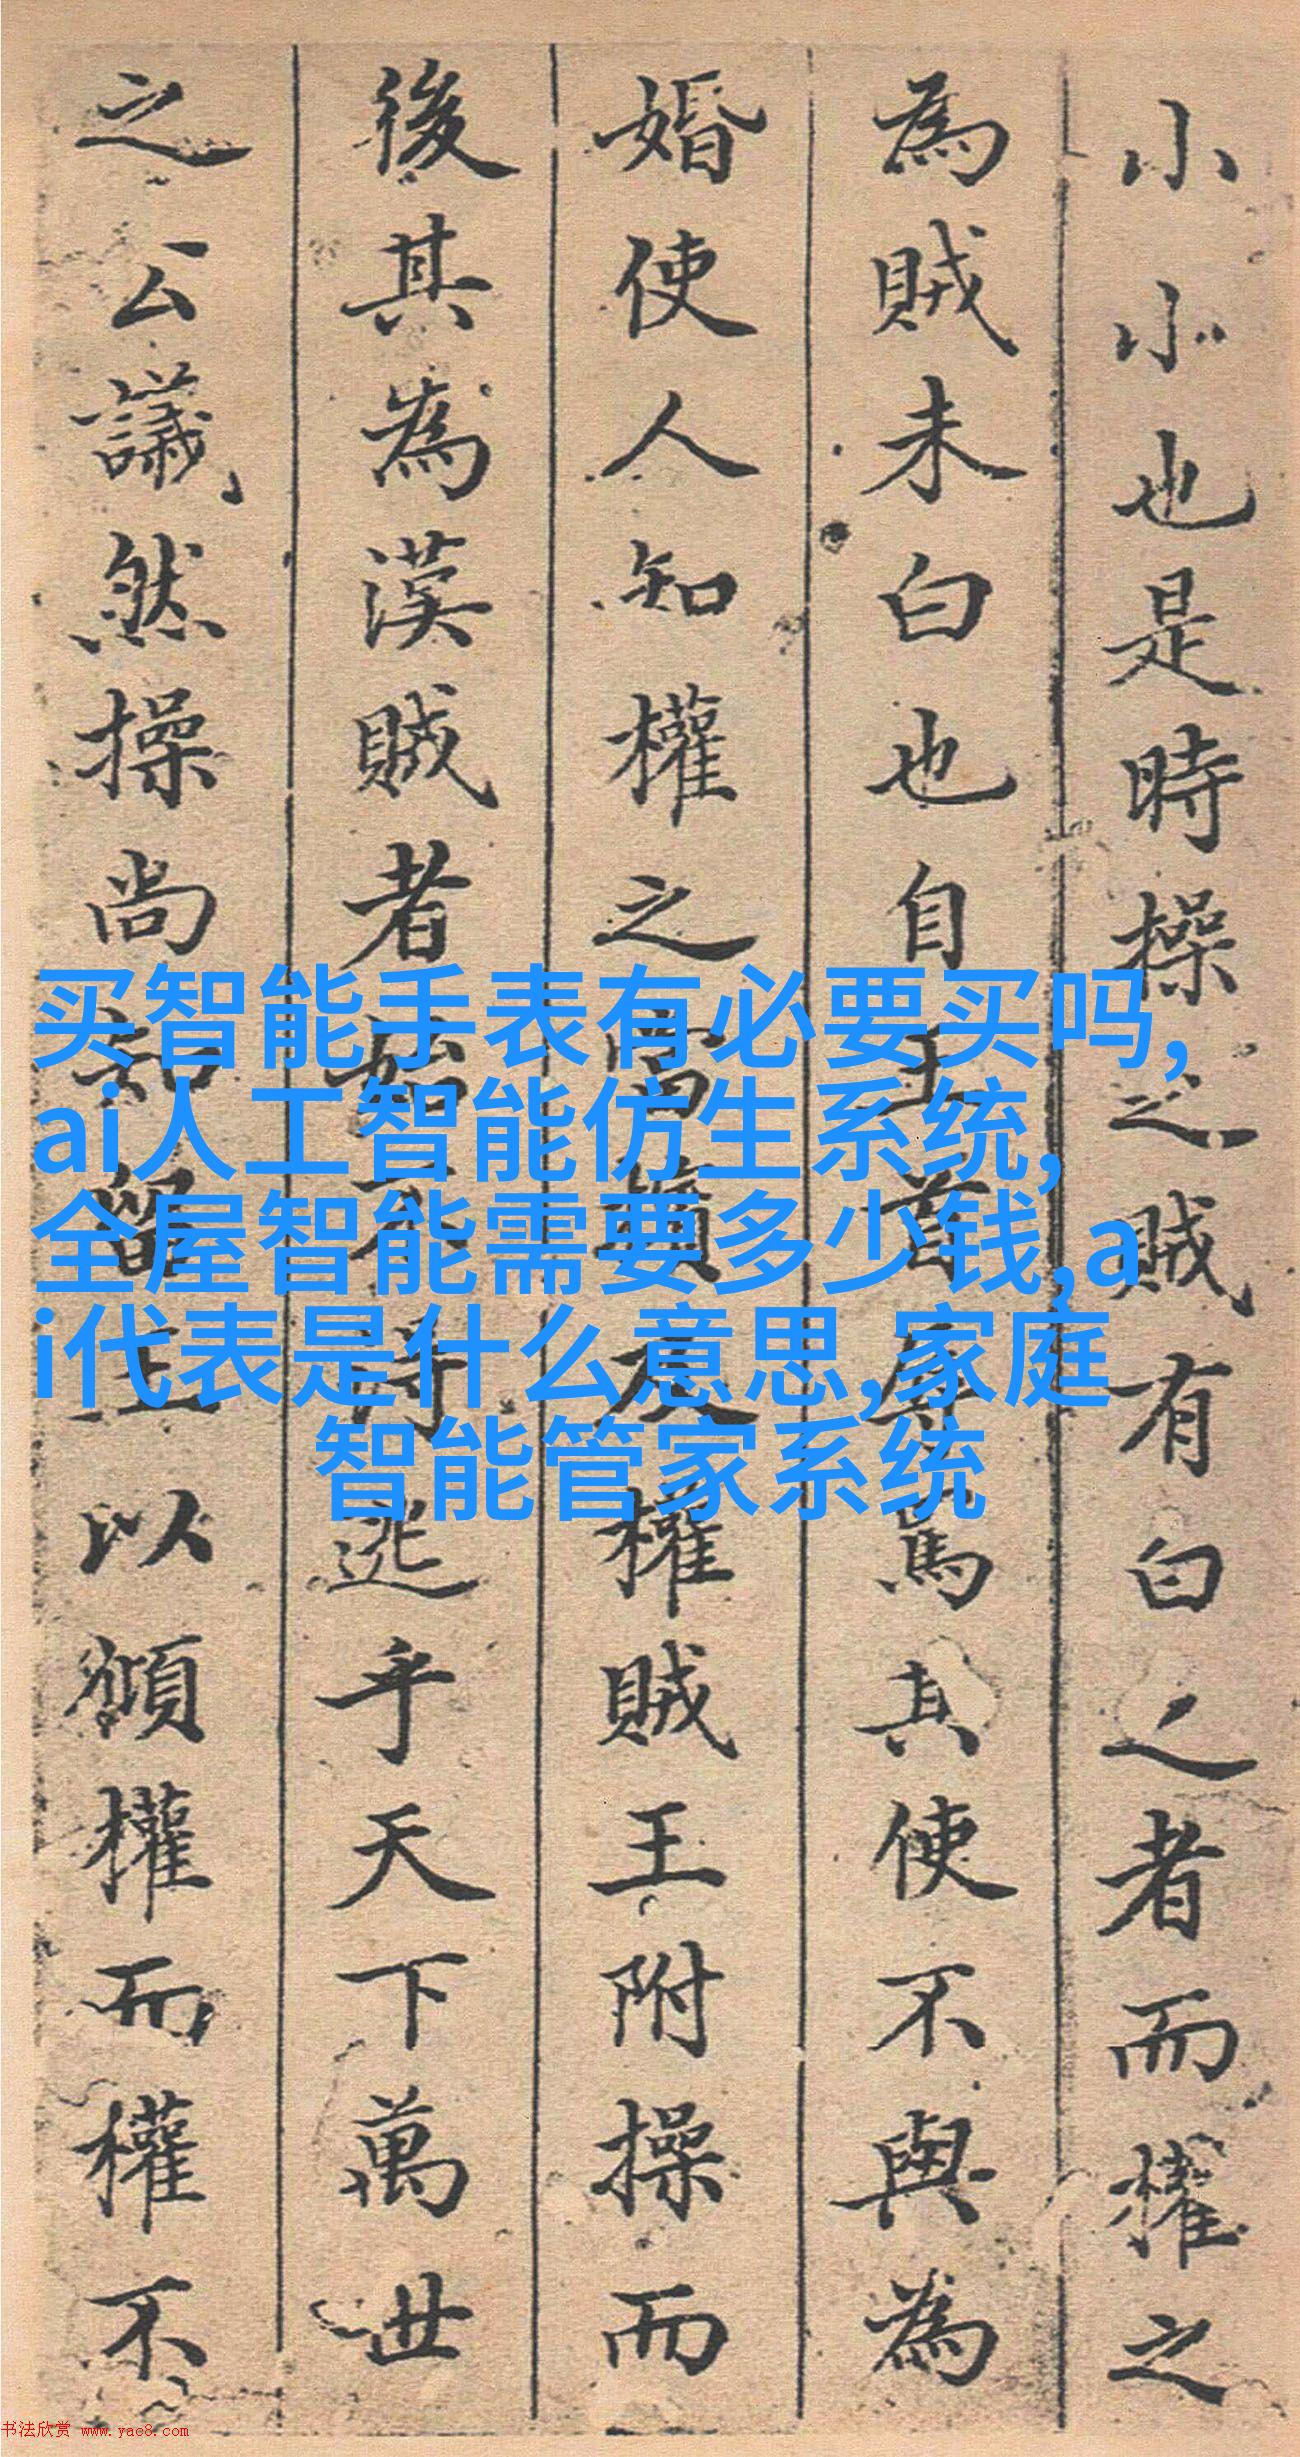 小小也是時操之賊有白之者而權之
為賊未白也自王首辱罵其使不與為
婚使人知權之為賊及權賊王附操而
後其為漢賊者始不得逃乎天下萬世
之公議然操尚知畏王以傾權而權不
买智能手表有必要买吗,
ai人工智能仿生系统,
全屋智能需要多少钱,a
i代表是什么意思,家庭
智能管家系统
书法欣赏 www.yac8.com